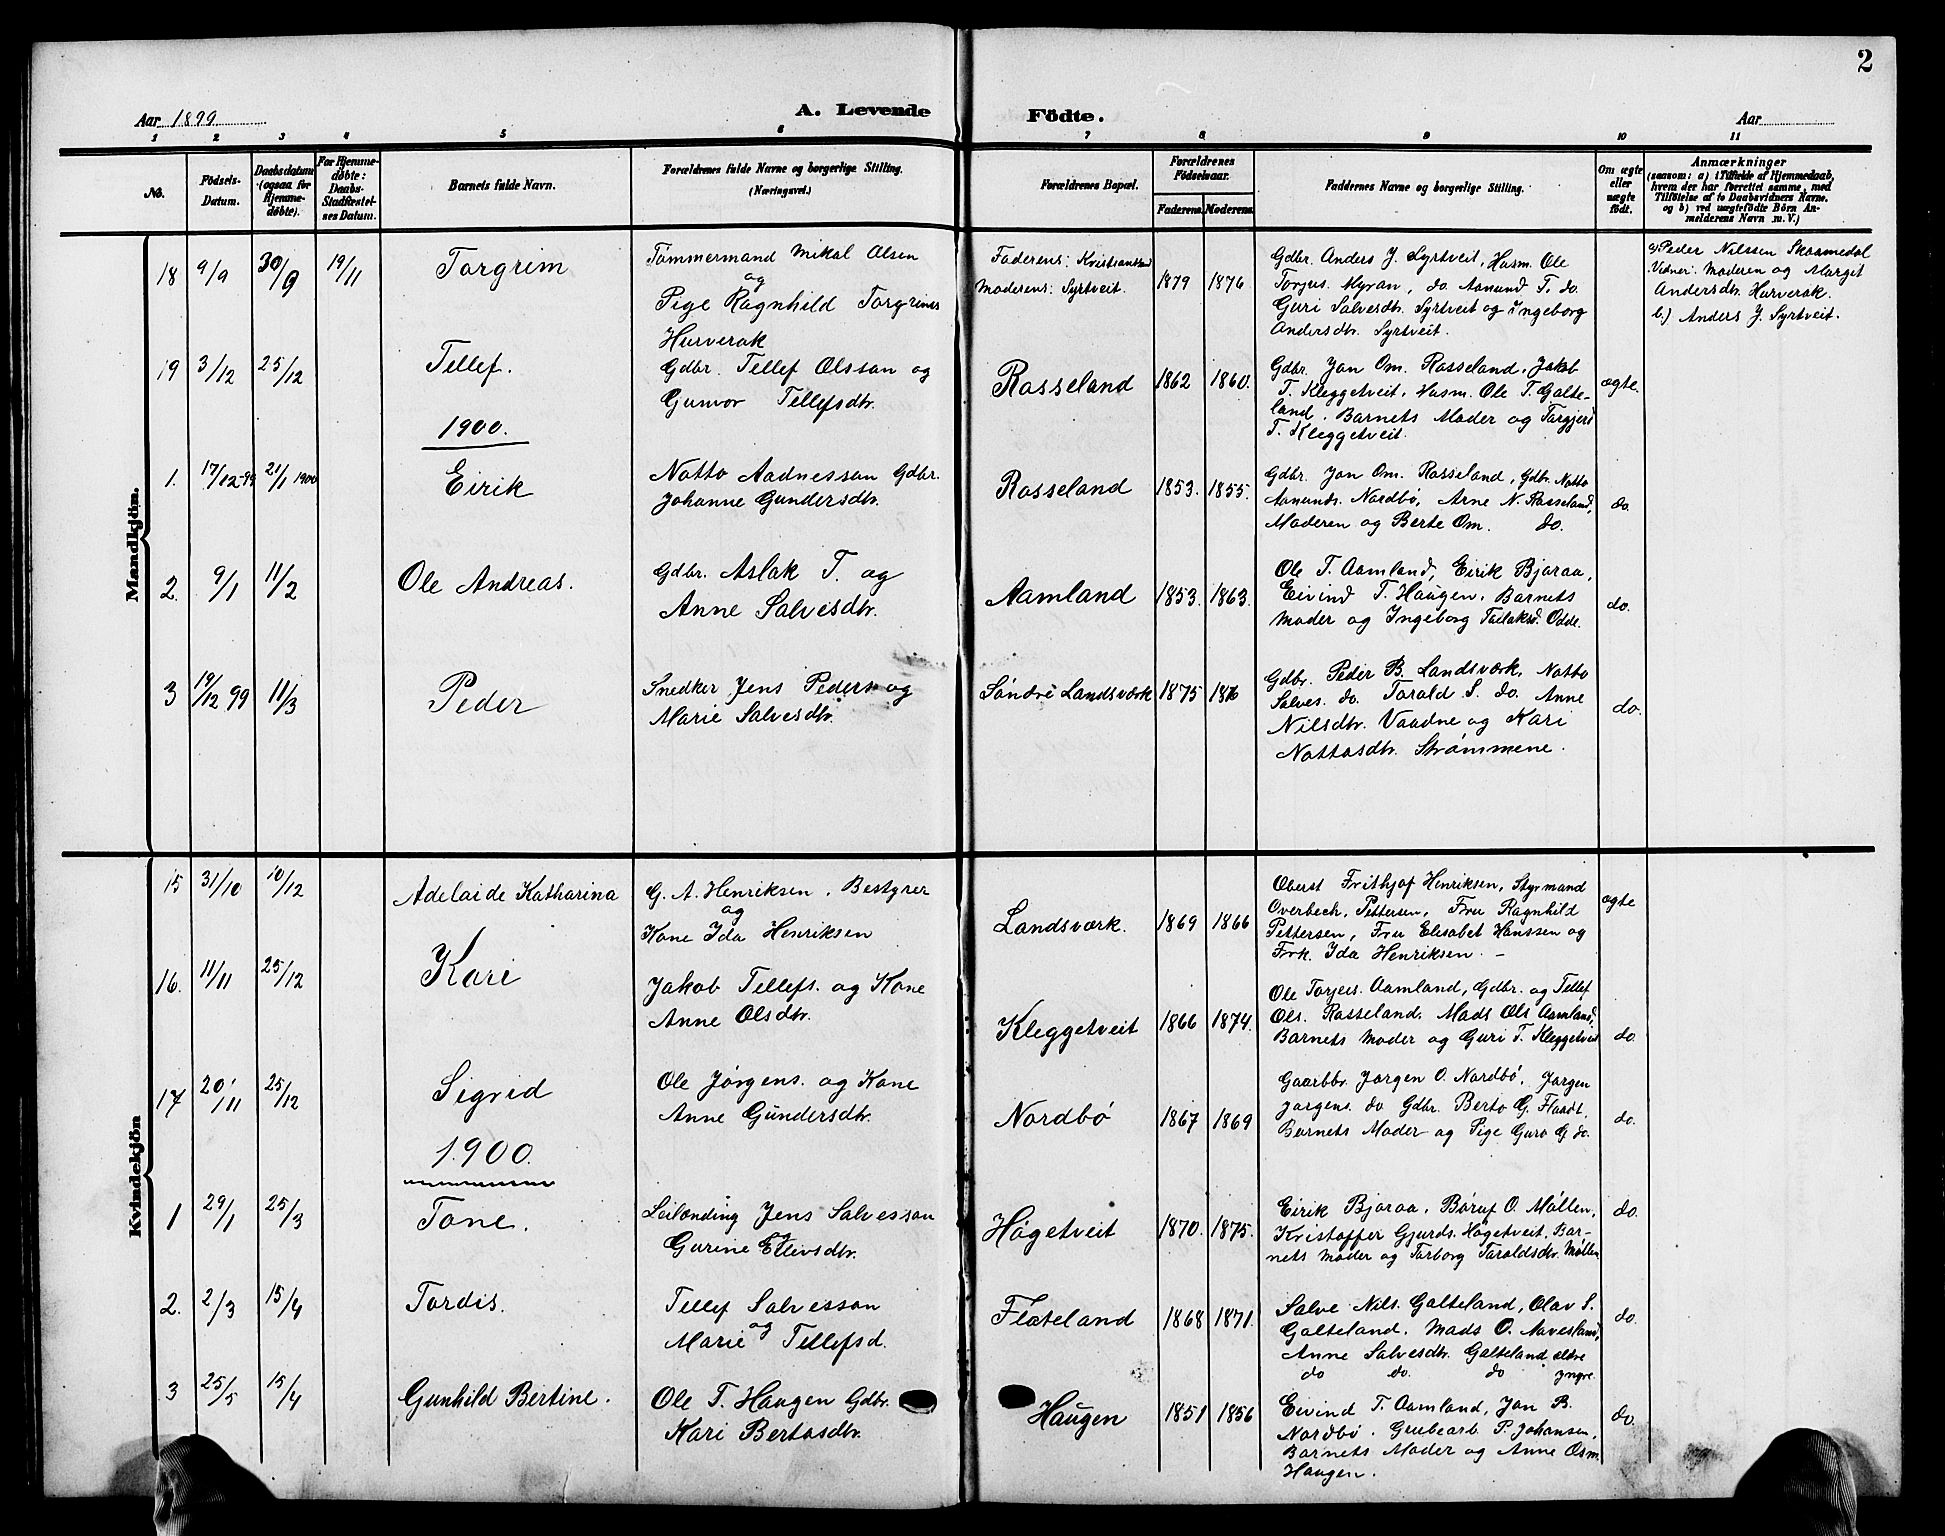 2
Aar 1899
A. Levende
Födte.
Aar
1 2 3 4 5 6 7 8 9 10 11
No.
Födsels-Datum.
Daabsdatum (ogsaa for Hjemmedøbte).
For Hjemmedøbte: Daabs-Stadfæstelses Datum.
Barnets fulde Navn.
Forældrenes fulde Navne og borgerlige Stilling. (Næringsvei.)
Forældrenes Bopæl.
Forældrenes Födselsaar.
Faderens. Moderens.
Faddernes Navne og borgerlige Stilling.
Om ægte eller uægte födt.
Anmærkninger
(saasom: a) i Tilfælde af Hjemmedaab, hvem der har forrettet samme, med Tilföielse af to Daabsvidners Navne, og b) ved uægtefödte Börn Anmelderens Navn m. V.)
Mandkjön.
18 9/9 30/9 19/11 Torgrim
Tømmermand Mikal Olsen
og
Pige Ragnhild Torgrims
Hurverak
Faderens: Kristianssand
Moderens: Syrtveit. 1879 1876
Gdbr. Anders J. Syrtveit, Husm. Ole
Torjus. Myran, do. Aanund T. do.
Guri Salvesdtr. Syrtveit og Ingeborg
Andersdtr. Syrtveit.
a) Peder Nilssen Skaamedal
Vidner: Moderen og Marget
Andersdtr. Hurverak.
b.) Anders J. Syrtveit.
19 3/12 25/12 Tellef.
Gdbr. Tellef Olsson og
Gunvor Tellefsdtr.
Rosseland 1862 1860.
Gdbr. Jon Om. Rosseland, Jakob
T. Kleggetveit, Husm. Ole T. Galteland.
Barnets Moder og Torgjerd
T. Kleggetveit.
ægte.
1900.
1. 17/12-99 21/1 1900 Eirik
Notto Aadnesson Gdbr.
Johanne Gundersdtr.
Rosseland 1853. 1855.
Gdbr. Jon Om. Rosseland, Gdbr. Notto
Aanunds. Nordbø, Arne N. Rosseland,
Moderen og Berte Om. do.
do.
2. 9/1 11/2 Ole Andreas.
Gdbr. Aslak T. og
Anne Salvesdtr.
Aamland 1853. 1863.
Ole T. Aamland, Eirik Bjoraa,
Eivind T. Haugen, Barnets
Moder og Ingeborg Odde.
do.
3 19/12 99 11/3 Peder
Snedker Jens Peders. og
Marie Salvesdtr.
Søndre Landsværk 1875
Gdbr. Peder B. Landsværk, Notto
Salves. do. Torald S. do. Anne
Nilsdtr. Vaadne og Kari
Nottosdtr. Strømmene.
do.
Kvindekjön
15 31/10 10/12 Adelaide Katharina
G. A. Henriksen, Bestyrer
og
Kone Ida Henriksen
Landsværk. 1869 1866
Oberst Frithjof Henriksen, Styrmand
Overbech, Pettersen, Fru Ragnhild
Pettersen, Fru Elisabet Hanssen og
Frk. Ida Henriksen. –
ægte
16. 11/11 25/12 Kari
Jakob Tellefs. og Kone
Anne Olsdtr.
Kleggetveit 1866 1874.
Ole Torjers. Aamland, Gdbr. og Tellef
Ols. Rosseland. Mads Ols Aamland,
Barnets Moder og Guri T. Kleggetveit
do.
17 20/11 25/12 Sigrid
Ole Jørgens. og Kone
Anne Gundersdtr.
Nordbø 1867 1869
Gaardbr. Jørgen O. Nordbø, Jørgen
Jørgens. do Gdbr. Berto G.
Barnets Moder og Pige Guro G. do.
do.
1900.
1 29/1 25/3 Tone.
Leilænding Jens Salvesson
og
Gurine Ellevsdtr.
Høgetveit 1870. 1875.
Eirik Bjoraa, Børuf O. Møllen,
Kristoffer Gjurds. Høgetveit, Barnets
Moder og Torborg Taraldsdtr. Møllen
do.
2. 2/3 15/4 Tordis.
Tellef Salvesson
og
Marie Tellefsd.
Flateland 1868 1871.
Salve Nils. Galteland, Olav S.
Galteland. Mads O. Aavesland,
Anne Salvesdtr. Galteland ældre
do do. do yngre.
do.
3 25/5 15/4 Gunhild Bertine.
Ole T. Haugen Gdbr.
Kari Bertosdtr.
Haugen 1851 1856
Eivind T. Aamland, Jon B.
Nordbø. Grubearb. P. Johansen,
Barnets Moder og Anne Osm.
Haugen.
do.